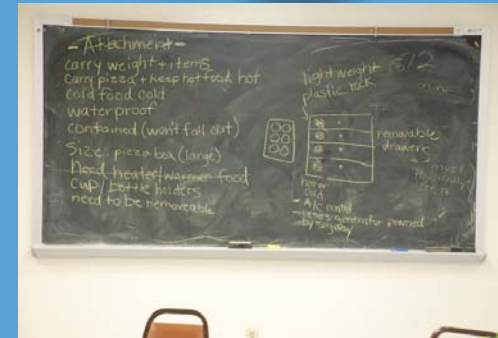 - Attachment -
carry weight + items
carry pizza + keep hot food hot
cold food cold
waterproof
contained (won't fall out)
Size: pizza box (large)
need heater/warmer food
cup/bottle holders
need to be removeable
light weight
plastic rack
removable
drawers
hot or
cold
- A/C control
generator powered
by segway